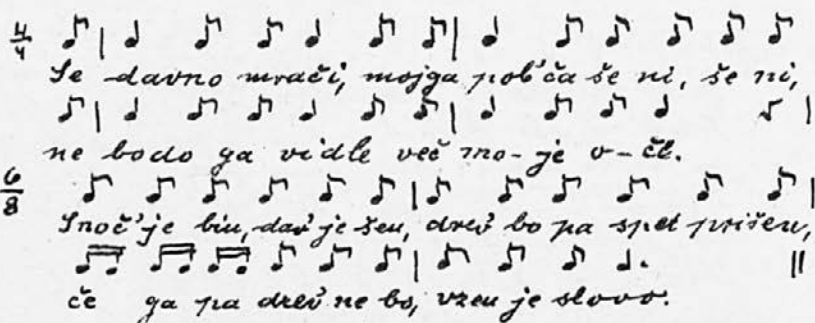 4/4
Se davno mrači, mojga pob'ča še ni, še ni,
ne bodo ga vidle več mo-je o-čč.
6/8
Snoč' je biu, dav' je šeu, drev' bo pa spet prišeu,
če ga pa drev' ne bo, vzeu je slovo.